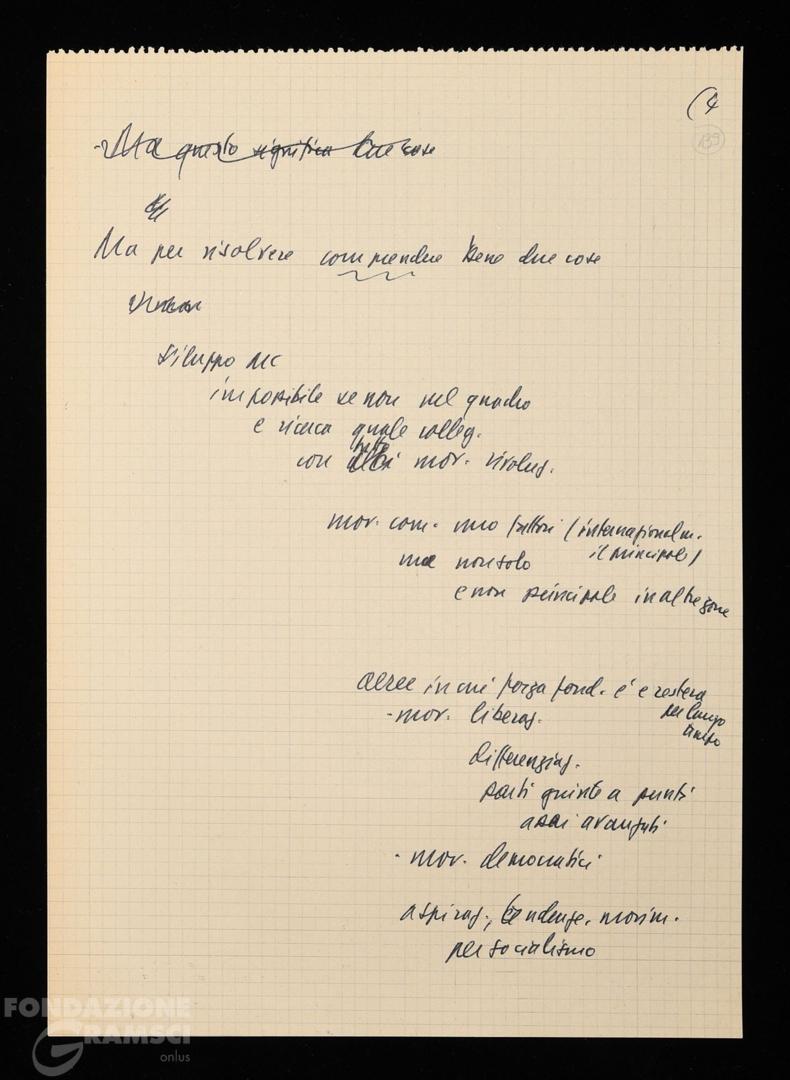 (4
139
- Ma questo significa due cose
Ma per risolvere comprendere bene due cose
Sviluppo MC
impossibile se non nel quadro
e ricerca quale colleg.
tutti
con altri mov. rivoluz.
mov. com. uno fattori (internazionalm.
il principale)
ma non solo
e non principale in altre zone
aree in cui forza fond. è e resterà
per lungo
tempo
- mov. liberaz.
differenziaz.
parti giunte a punti
assai avanzati
- mov. democratici
aspiraz., tendenze, movim.
per socialismo
FONDAZIONE
GRAMSCI
onlus